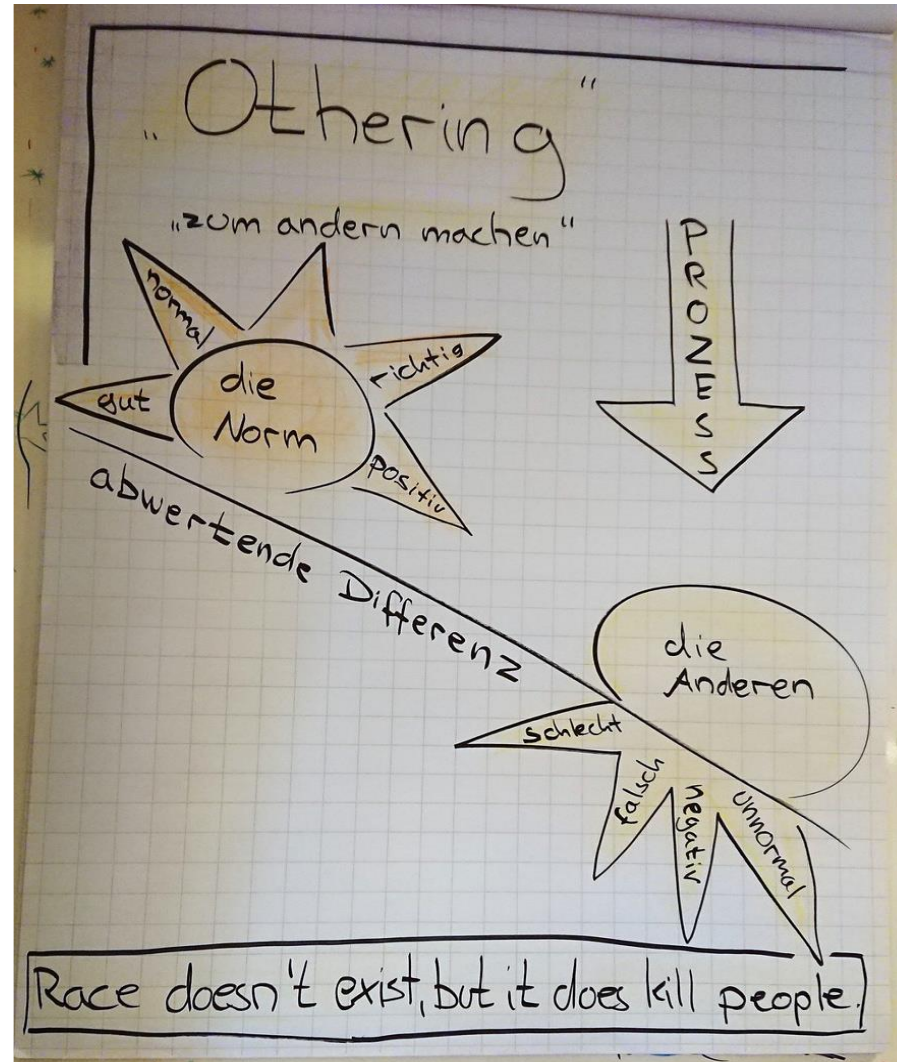 „Othering"
„zum andern machen"
PROZESS
normal
gut
die
Norm
richtig
positiv
abwertende Differenz
die
Anderen
schlecht
falsch
negativ
unnormal
Race doesn't exist, but it does kill people.